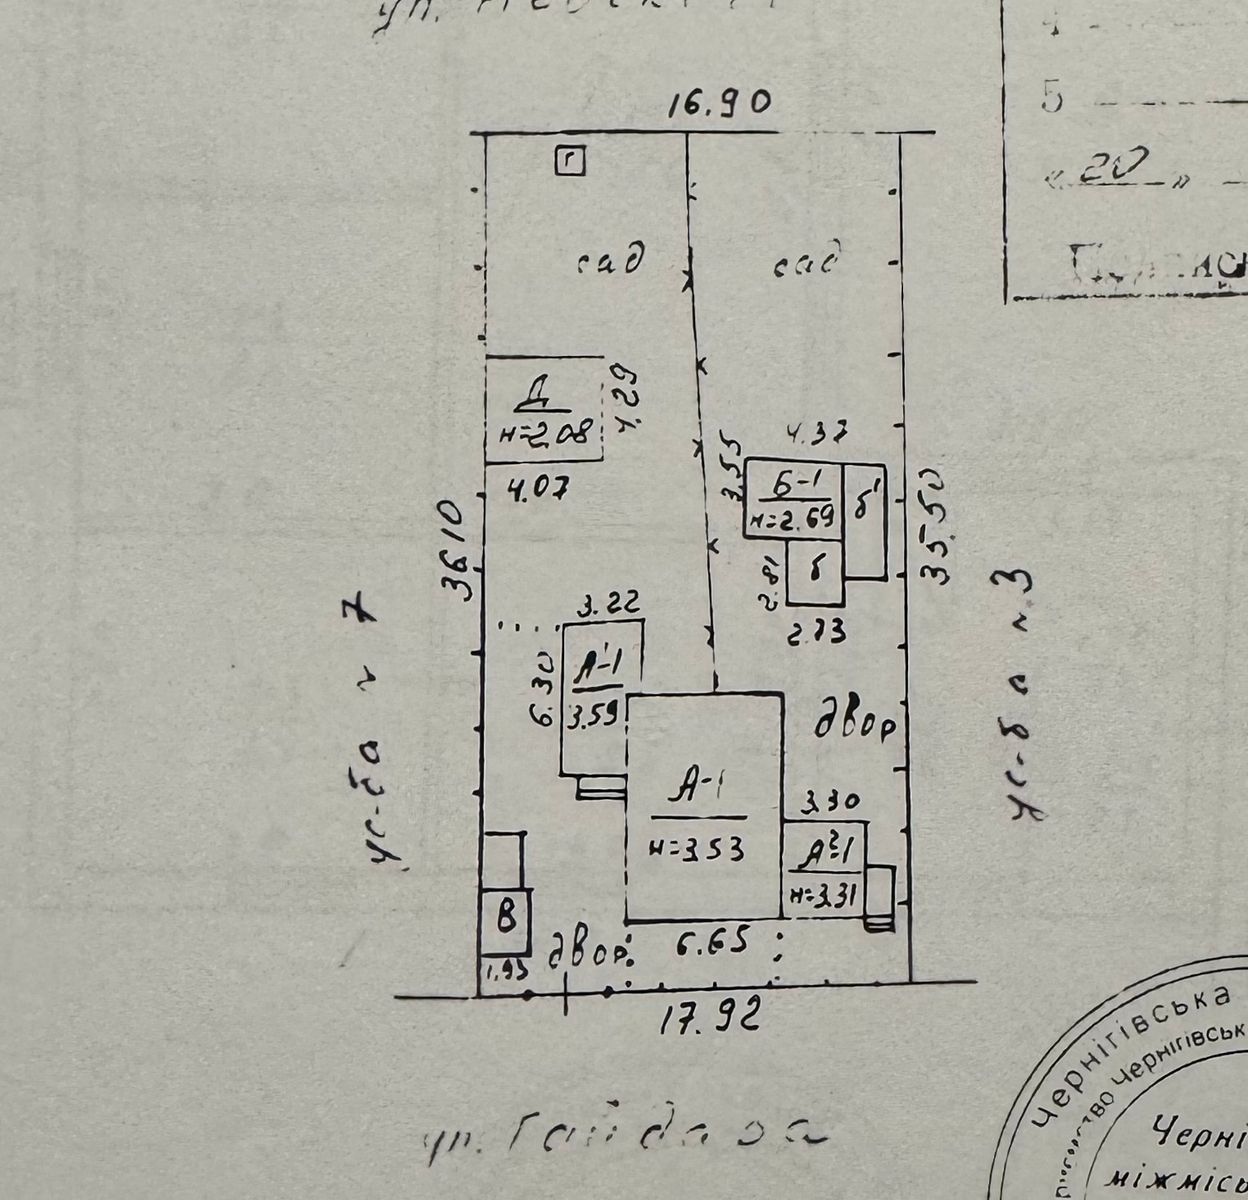 ул.
5
« 20 »
16.90
г
сад
сад
Д
н=2.08
4.29
4.07
4.37
3.55
Б-1
н=2.69
б¹
б
2.81
2.73
36.10
35.50
ус-ба n 7
ус-ба n 3
3.22
6.30
А¹-1
3.59
двор
А-1
н=3.53
3.30
А²-1
н=3.31
В
1.93
двор
6.65
17.92
ул. Гайдара
Чернігівська
Чернігівськ
Черні
міжмісь